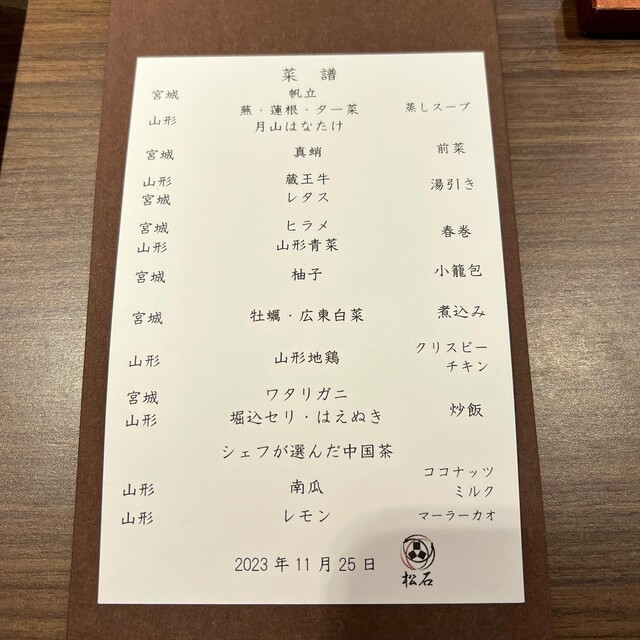 菜 譜
宮城 帆立
蕪・蓮根・ター菜 蒸しスープ
山形 月山はなたけ
宮城 真蛸 前菜
山形 蔵王牛 湯引き
宮城 レタス
宮城 ヒラメ 春巻
山形 山形青菜
宮城 柚子 小籠包
宮城 牡蠣・広東白菜 煮込み
山形 山形地鶏 クリスピー
チキン
宮城 ワタリガニ 炒飯
山形 堀込セリ・はえぬき
シェフが選んだ中国茶
山形 南瓜 ココナッツ
ミルク
山形 レモン マーラーカオ
2023年11月25日 松石